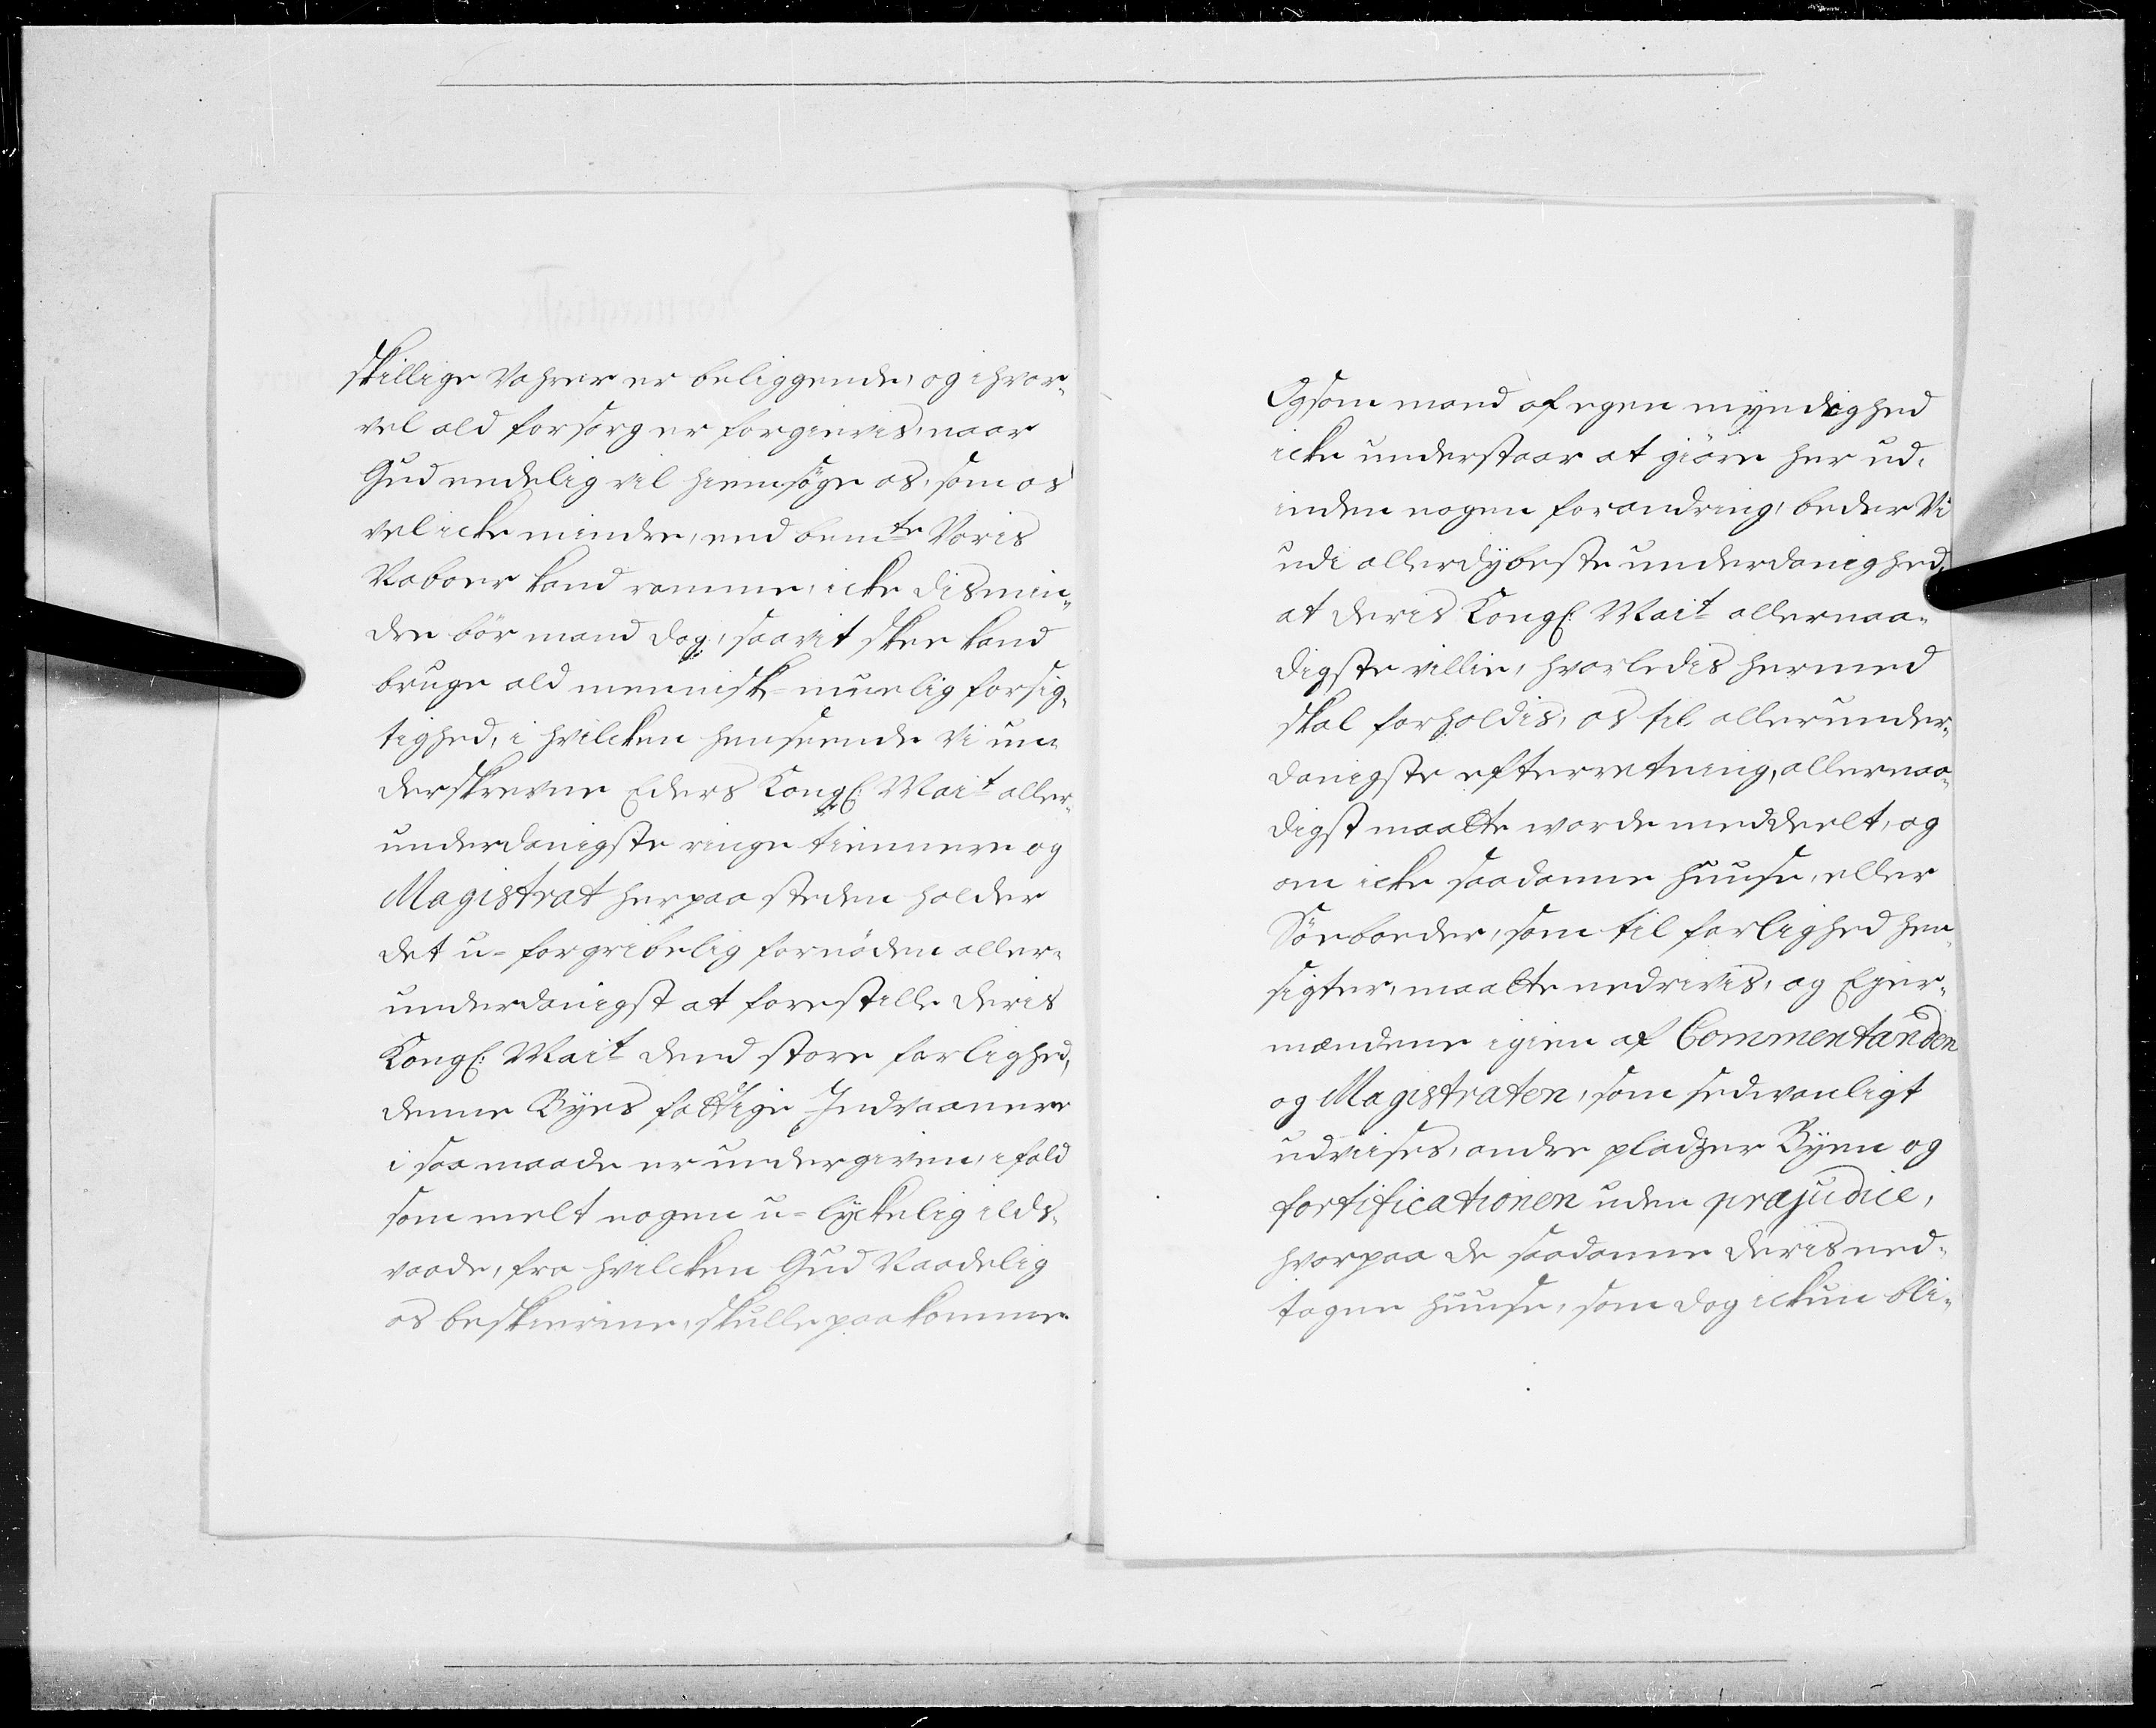 skillige Vahrer er beliggende, og ihvor-
vel ald forsorg er forgievis, naar
Gud endelig vil hiemsøge os, som os
vel icke mindre, end bemte Voris
Naboer kand ramme, icke dismin-
dre bør mand dog, saavit skee kand
bruge ald mennisk-muelig forsig-
tighed, i hvilcken henseende Vi un-
derskrevne Eders Kongl: Mait aller-
underdanigste ringe tiennere og
Magistrat her paa steden holder
det u-forgribelig fornøden aller-
underdanigst at forestille deris
Kongl: Mait dend store farlighed,
denne Byes fattige Indvaanere
i saa maade er undergiven, ifald
som melt nogen u-lyckelig ilds-
vaade, fra hvilcken Gud Naadelig
os beskierme, skulle paakomme.
Og som mand af egen myndighed
icke understaar at giøre her ud-
inden nogen forandring, beder Vi
udi allerdybeste underdanighed,
at deris Kongl: Mait allernaa-
digste villie, hvorledis hermed
skal forholdis, os til allerunder-
danigste efterretning, allernaa-
digst maatte worde meddeelt, og
om icke saadanne huuse, eller
Søeboeder, som til farlighed hen-
sigter, maatte nedrivis, og Eyer-
mændene igien af Commentanden
og Magistraten, som sedvanligt
udviises, andre pladzer Byen og
fortificationen uden præjudice,
hvorpaa de saadanne deris ned-
tagne huuse, som dog ickun bli-